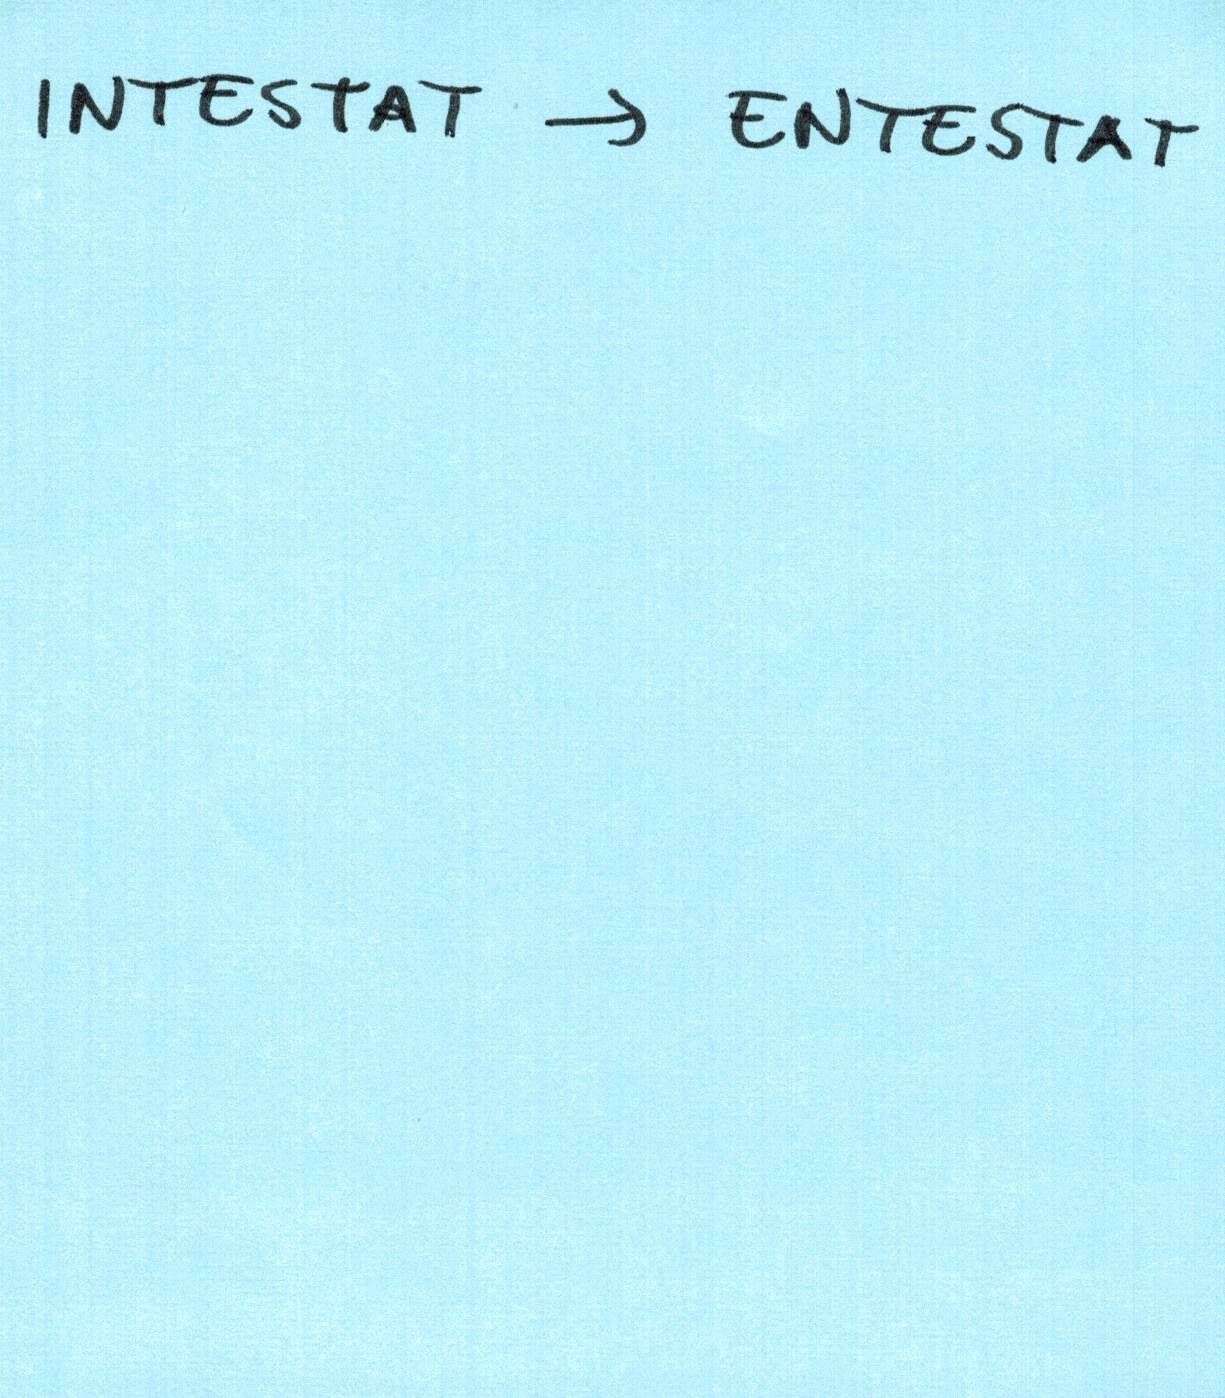 INTESTAT → ENTESTAT